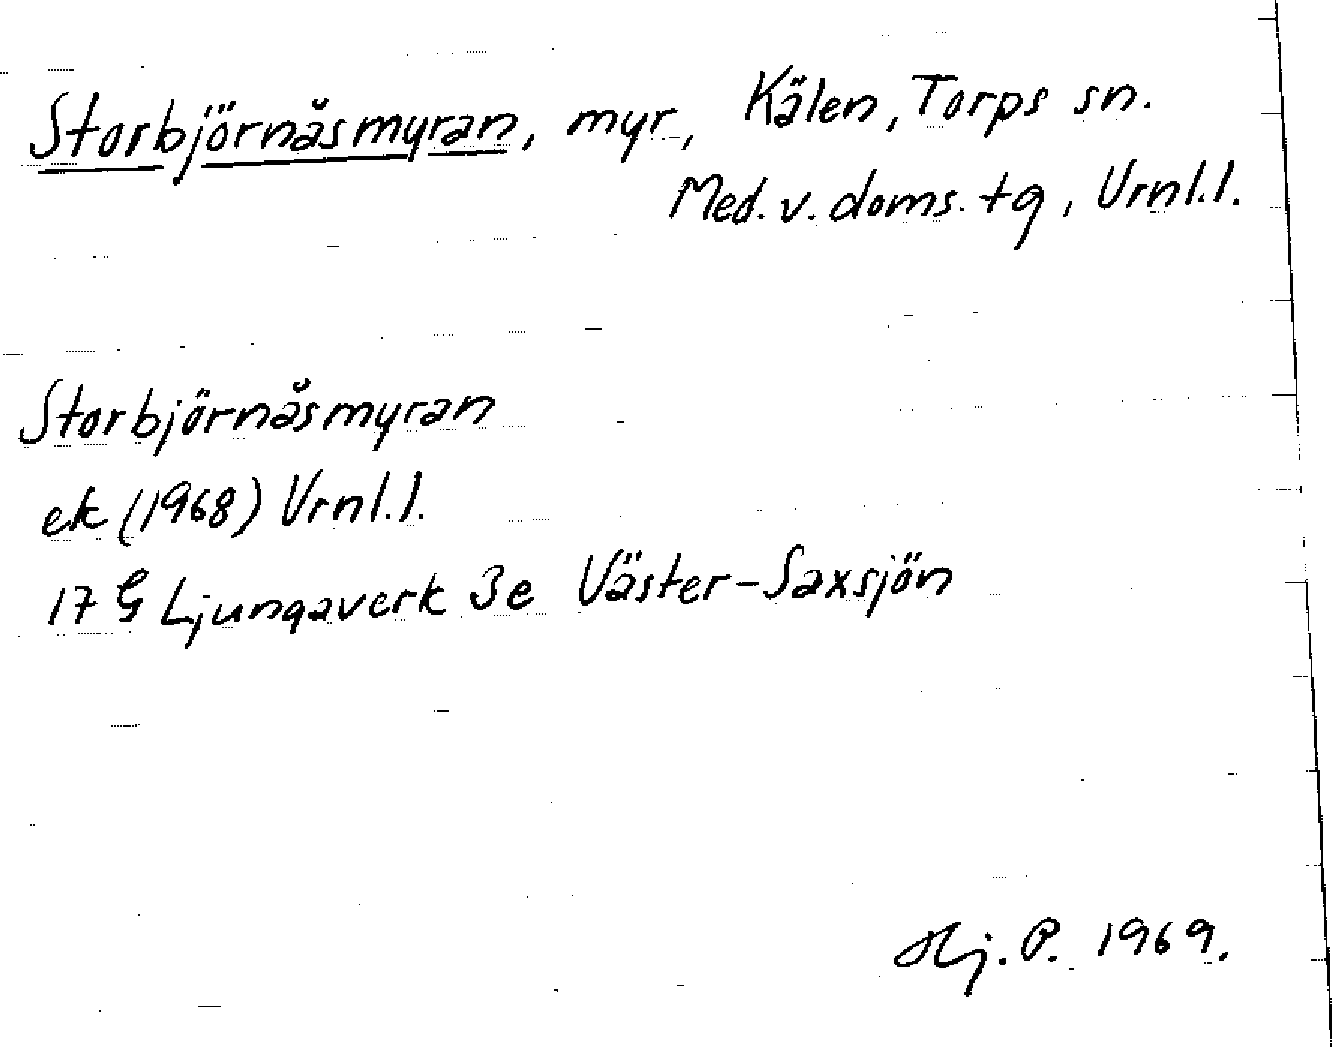 Storbjörnåsmyran, myr, Kälen, Torps sn.
Med. v. doms. tg, Vrnl.l.
Storbjörnåsmyran
ek (1968) Vrnl.l.
17 G Ljungaverk 3e Väster-Saxsjön
Hj. P. 1969.